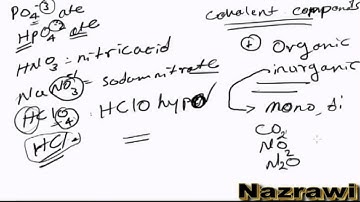 PO4-3 ate
HPO4-2 ate
HNO3 = nitric acid
NaNO3 = sodium nitrate
HClO4
HClO hypo
HCl
covalent compounds
+ Organic
inorganic
mono, di
CO2
NO2
N2O
Nazrawi